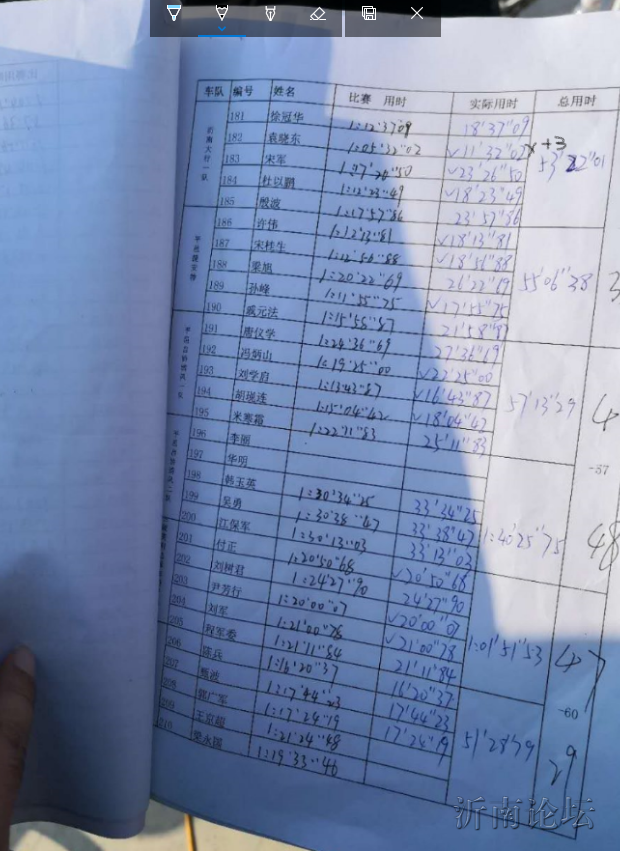 车队 编号 姓名 比赛 用时 实际用时 总用时
181 徐冠华 1:12'37"09 18'37"09
182 袁晓东 1:05'32"02 √11'32"02 x+3
183 宋军 √23'26"50 53'22"01
184 杜以鹏 1:12'23"49 √18'23"49
185 殷波 1:17'57"86 23'57"86
186 许伟 1:12'13"81 √18'13"81
187 宋桂生 1:12'56"88 √18'56"88
188 梁旭 1:20'22"69 55'06"38
189 孙峰 1:11'55"75 √17'55"75
190 戚元法
191 1:24'36"69
192 冯炳山 1:19'25"00 √22'25"00
193 刘学府 1:13'43"87 √16'43"87 57'13"29
194 胡顺连 1:15'04"42 √18'04"42
195 米寒霜 1:22'11"83 25'11"83
196 李丽
197 华明
-37
198 韩玉英
199 吴勇 1:30'34"25 33'34"25
200 江保军 1:30'38"47 33'38"47 1:40'25"75 48
201 付正 1:30'13"03 33'13"03
202 刘树君 1:20'50"68 √20'50"68
203 尹芳行 1:24'27"90 24'27"90
204 刘军 1:20'00"07 √20'00"07
205 程军委 1:21'00"78 √21'00"78 1:01'51"53 47
206 陈兵 1:21'11"84 21'11"84
207 1:16'20"37 16'20"37
-60
208 1:17'44"23 17'44"23
209 王京超 1:17'24"19 17'24"19 51'28"79 29
210 1:21'24"48
1:19'33"46
沂南论坛